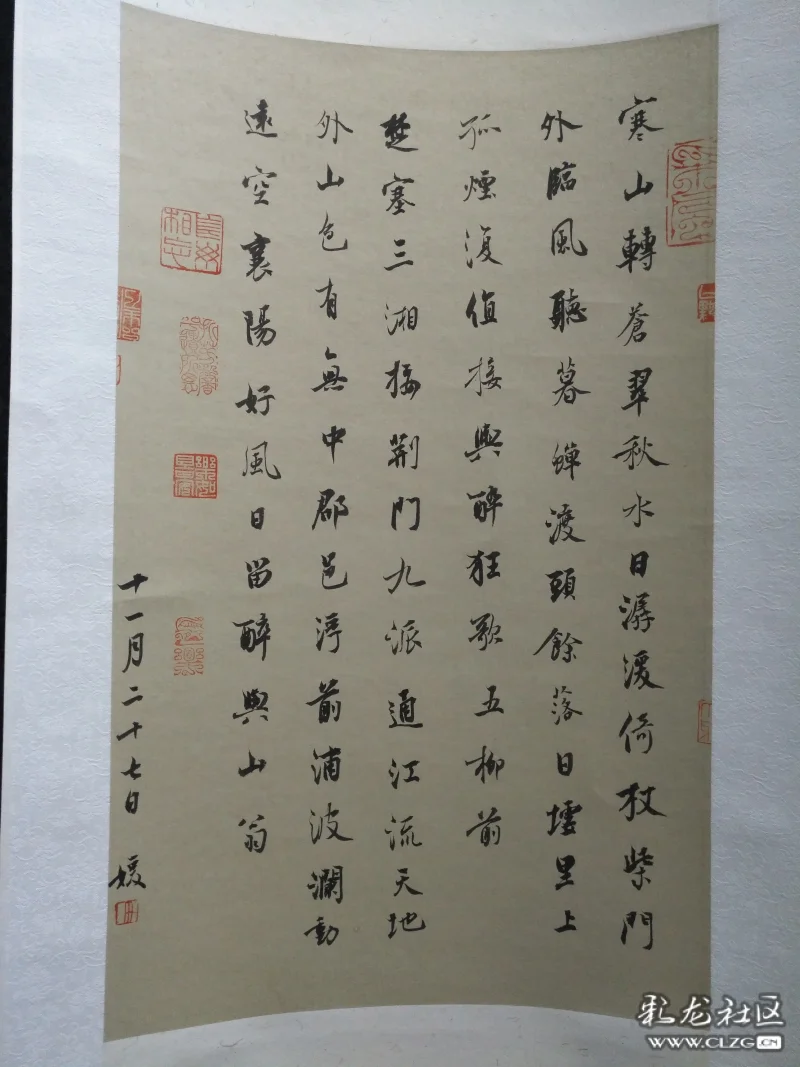 寒山轉蒼翠秋水日潺湲倚杖柴門
外臨風聽暮蟬渡頭餘落日墟里上
孤煙復值接輿醉狂歌五柳前
楚塞三湘接荆門九派通江流天地
外山色有無中郡邑浮前浦波瀾動
遠空襄陽好風日留醉與山翁
十一月二十七日 媛
相忘
彩龙社区
WWW.CLZG.CN